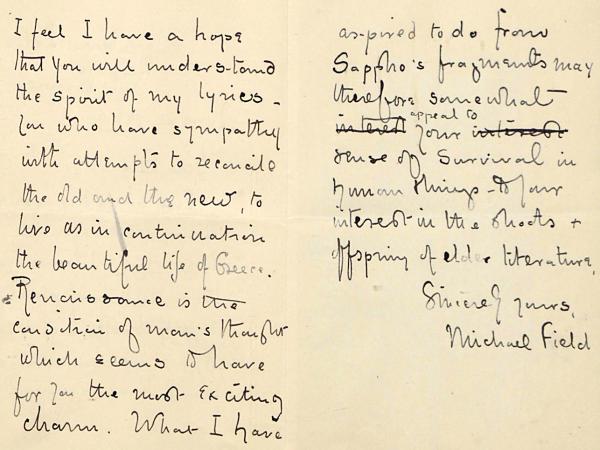 I feel I have a hope
that you will understand
the spirit of my lyrics -
you who have sympathy
with attempts to reconcile
the old and the new, to
live as in continuation
the beautiful life of Greece.
Renaissance is the
condition of man's thought
which seems to have
for you the most exciting
charm. What I have
aspired to do from
Sappho's fragments may
therefore somewhat
appeal to
interest your interest
sense of survival in
human things - to your
interest in the shoots +
offspring of elder literature.
Sincerely yours,
Michael Field